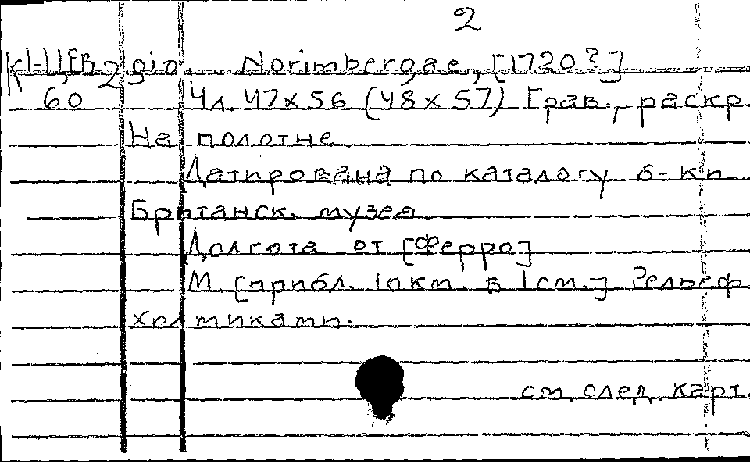 2
К1-ЦЕВ 2 gio. Norimbergae, [1720?]
60 4л. 47x56 (48x57) Грав., раскр.
На полотне.
Датирована по каталогу б-ки
Британск. музея.
Долгота от [Ферро]
М. [прибл. 1пкм. в 1см.] Рельеф
холмиками.
см. след. карт.